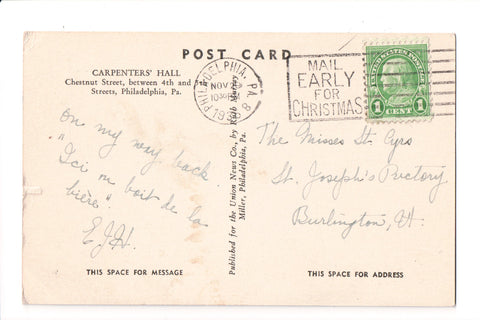 POST CARD
CARPENTERS' HALL
Chestnut Street, between 4th and
Streets, Philadelphia, Pa.
PHILADELPHIA, PA.
NOV
10
MAIL
EARLY
FOR
CHRISTMAS
UNITED STATES POSTAGE
1 1
CENT
on my way back
"Ici on boit de la
bière".
E.J.H.
Published for the Union News Co., by
Miller, Philadelphia, Pa.
The Misses St Cyrs
St. Joseph's Rectory
Burlington, Vt.
THIS SPACE FOR MESSAGE
THIS SPACE FOR ADDRESS